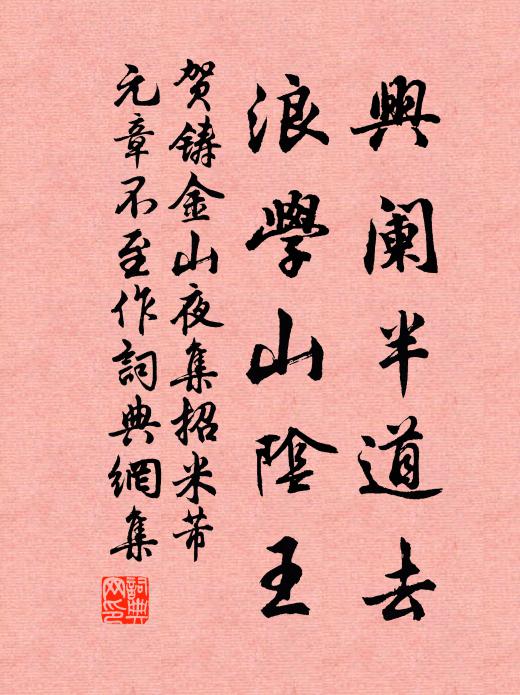 興阑半道去
浪學山陰王
贺鑄金山夜集招米芾
元章不至作詞典網集
詞典網印